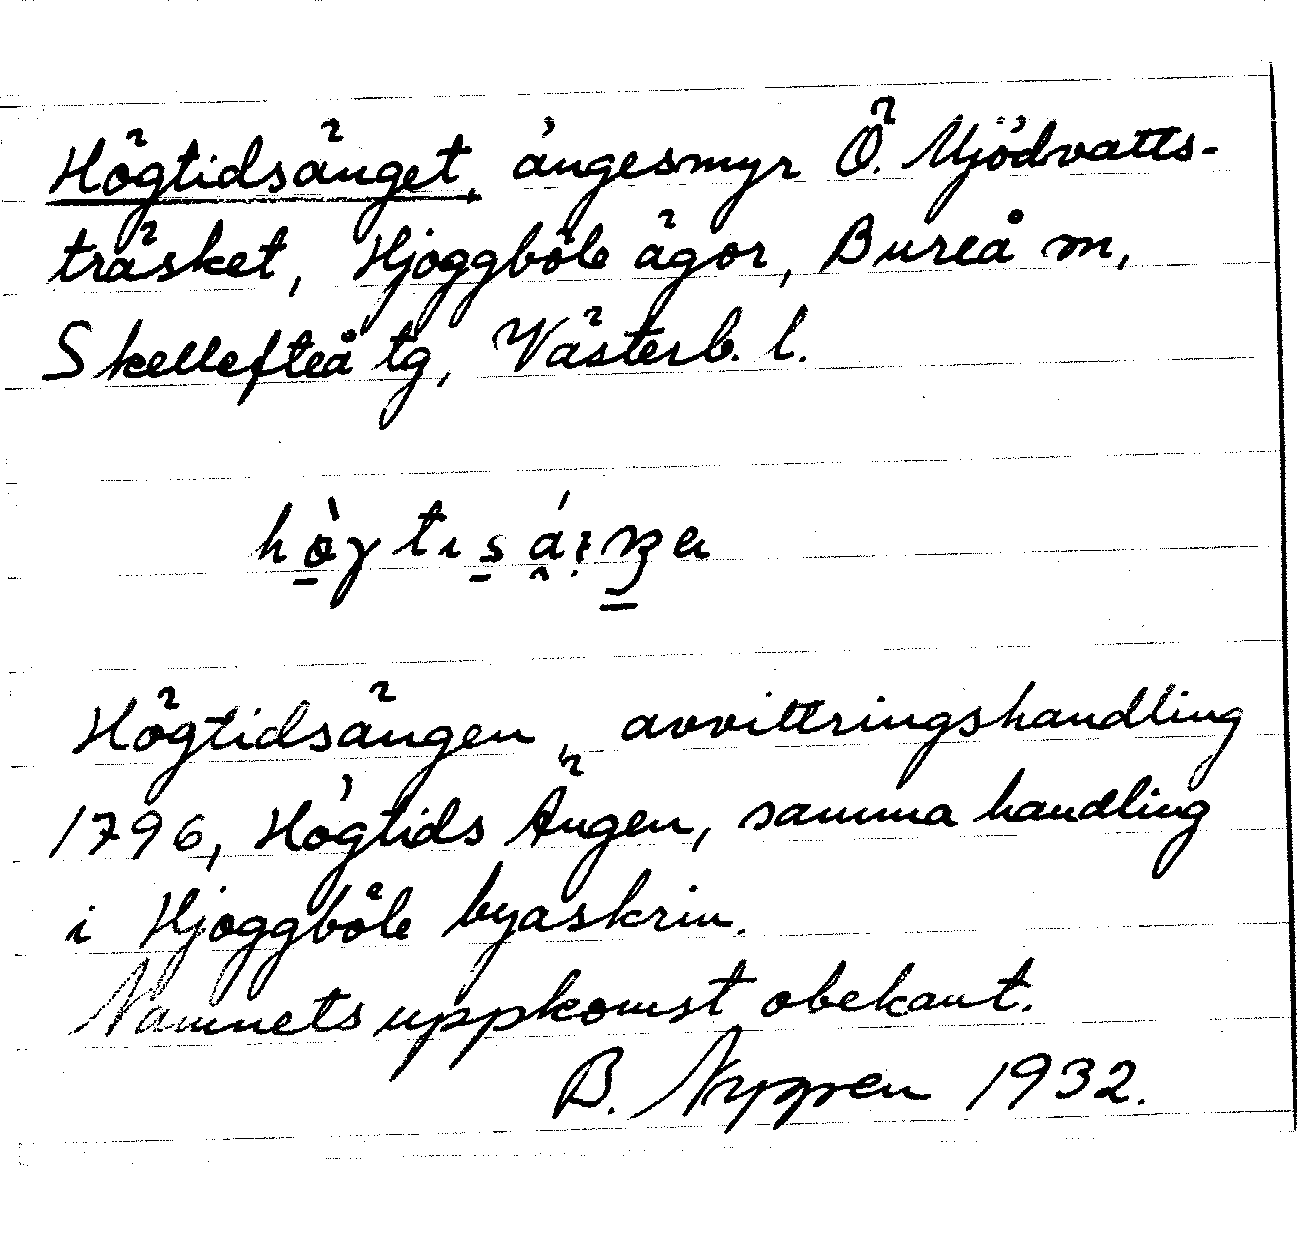 Högtidsänget, ängesmyr Ö. Mjödvatts-
träsket, Hjoggböle ägor, Bureå sn,
Skellefteå tg, Västerb. l.
Högtidsängen, avvittringshandling
1796, Högtids Ängen, samma handling
i Hjoggböle byaskrin.
Namnets uppkomst obekant.
B. Nygren 1932.